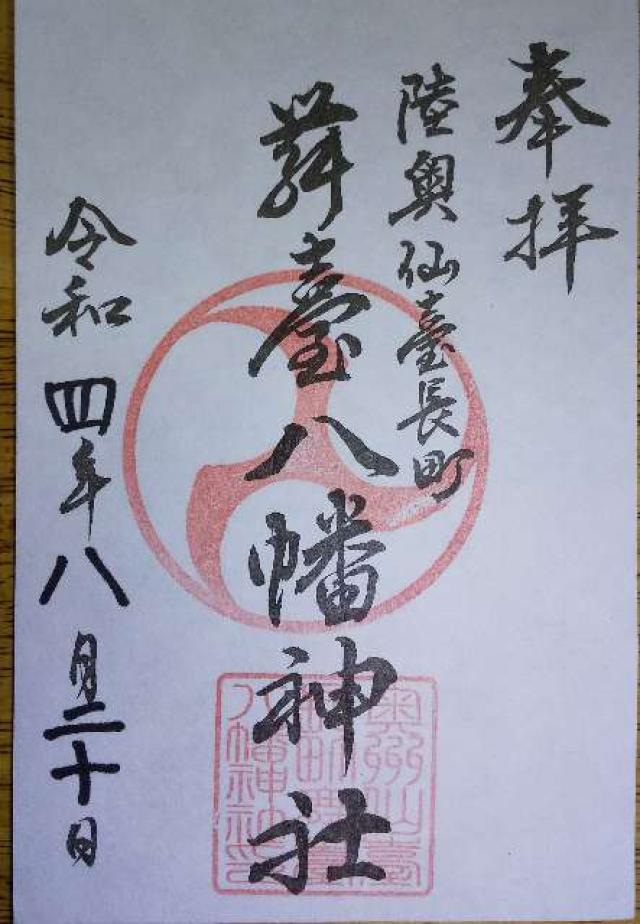 奉拝
陸奥仙臺長町
舞臺八幡神社
令和四年八月二十日